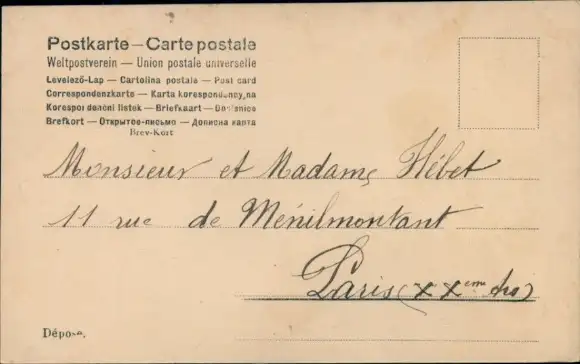 Postkarte — Carte postale
Weltpostverein — Union postale universelle
Levelező-Lap — Cartolina postale — Post card
Correspondenzkarte — Karta korespondencyjna
Korespondenční lístek — Briefkaart — Dopisnice
Brefkort — Открытое-письмо — Дописна карта
Brev-Kort
Monsieur et Madame Hébet
11 rue de Ménilmontant
Paris (XXeme Arr)
Déposé.